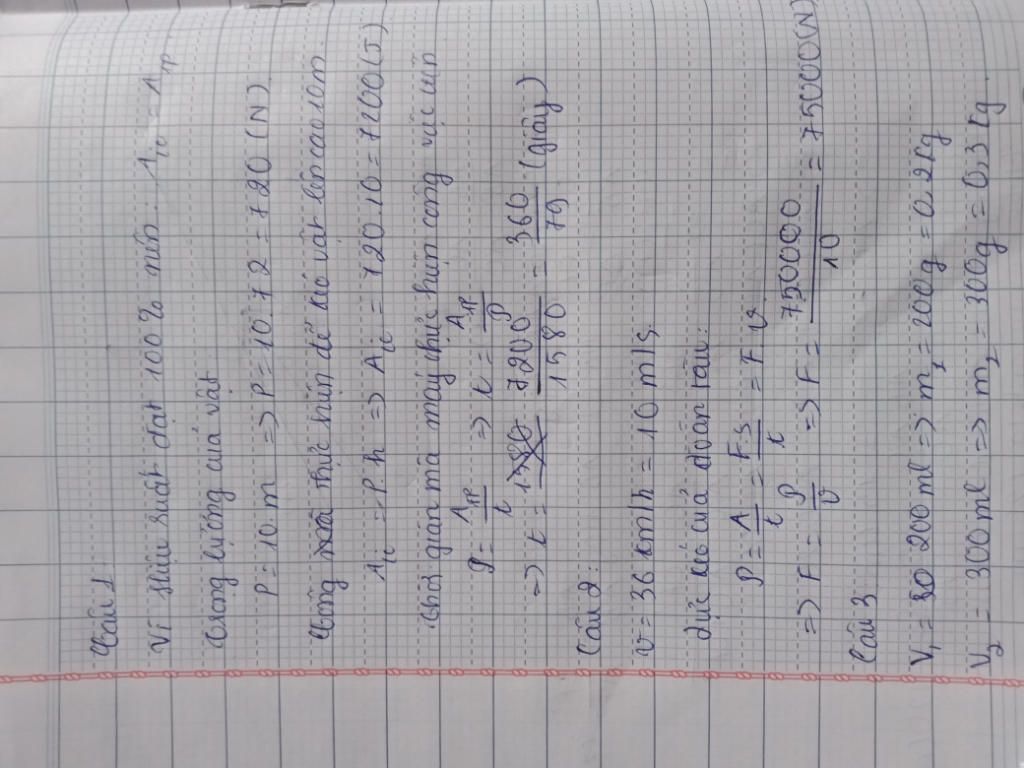 Câu 1:
Vì hiệu suất đạt 100% nên: Aᵢ₀ = Aₜₚ
Trọng lượng của vật
P = 10.m => P = 10.72 = 720 (N)
Công thực hiện để kéo vật lên cao 10m
Aᵢ = P.h => Aᵢ = 720.10 = 7200 (J)
Thời gian mà máy thực hiện công việc trên
𝒫 = Aₜₚ/t => t = Aₜₚ/𝒫
=> t = 7200/1580 = 360/79 (giây)
Câu 2:
v = 36 km/h = 10 m/s
Lực kéo của đoàn tàu:
𝒫 = A/t = F.s/t = F.v
=> F = 𝒫/v => F = 750000/10 = 75000 (N)
Câu 3
V₁ = 200 ml => m₁ = 200g = 0,2 kg
V₂ = 300 ml => m₂ = 300g = 0,3 kg